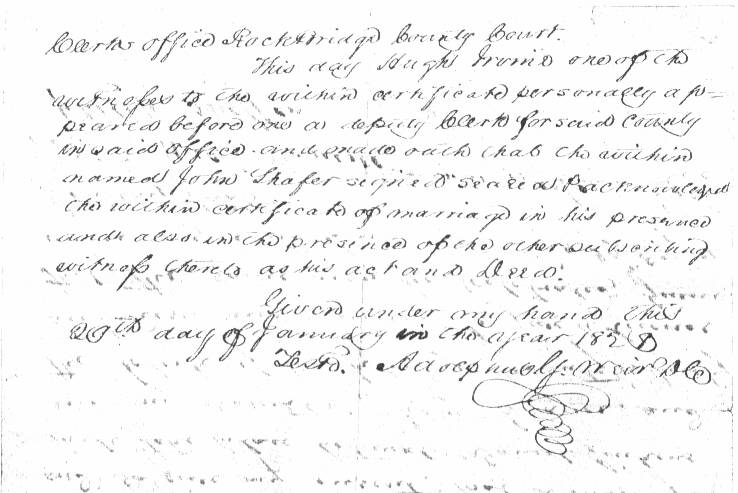 Clerks office Rockbridge County Court.
This day Hugh Irvine one of the
witnesses to the within certificate personally ap=
peared before me a deputy Clerk for said County
in said office and made oath that the within
named John Shafer signed sealed & acknowledged
the within certificate of marriage in his presence
and also in the presence of the other subscribing
witness thereto as his act and Deed.
Given under my hand this
29th day of January in the year 182
Teste. Weir DC